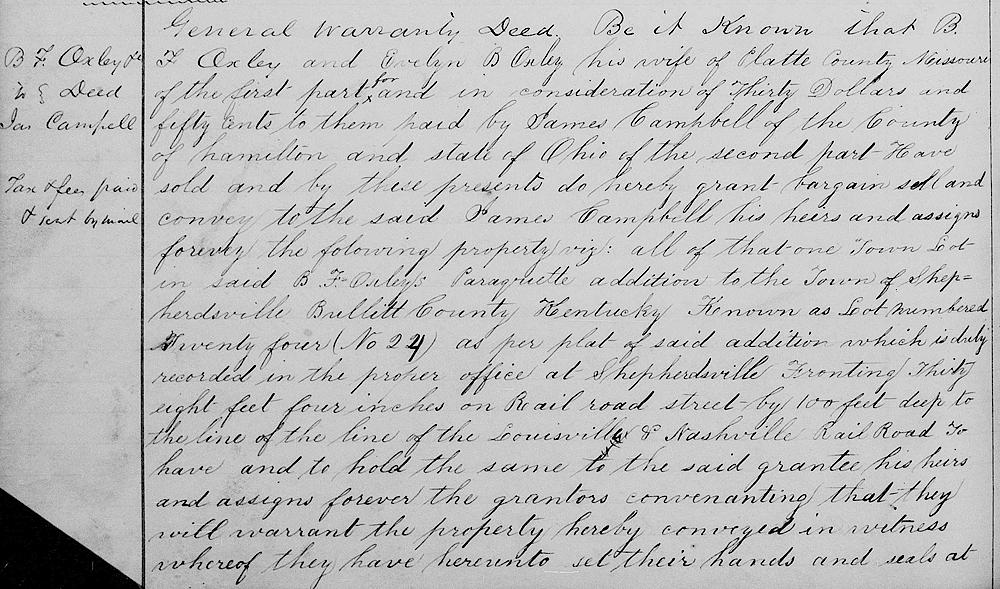 General Warranty Deed. Be it Known that B.
B F. Oxley &c
F Oxley and Evelyn B Oxley his wife of Platte County Missouri
of the first part for and in consideration of Thirty Dollars and
Deed
fifty cents to them paid by James Campbell of the County
Jas Campell
of hamilton and state of Ohio of the second part Have
sold and by these presents do hereby grant bargain sell and
Tax & fees paid
convey to the said James Campbell his heirs and assigns
& sent by mail
forever the folowing property viz: all of that one Town Lot
in said B F Oxley's Paraquette addition to the Town of Shep=
herdsville Bullett County Kentucky Known as Lot numbered
Twenty four (No 24) as per plat of said addition which is duly
recorded in the proper office at Shepherdsville Fronting Thirty
eight feet four inches on Rail road street by 100 feet deep to
the line of the line of the Louisville & Nashville Rail Road To
have and to hold the same to the said grantee his heirs
and assigns forever the grantors convenanting that they
will warrant the property hereby conveyed in witness
whereof they have hereunto set their hands and seals at